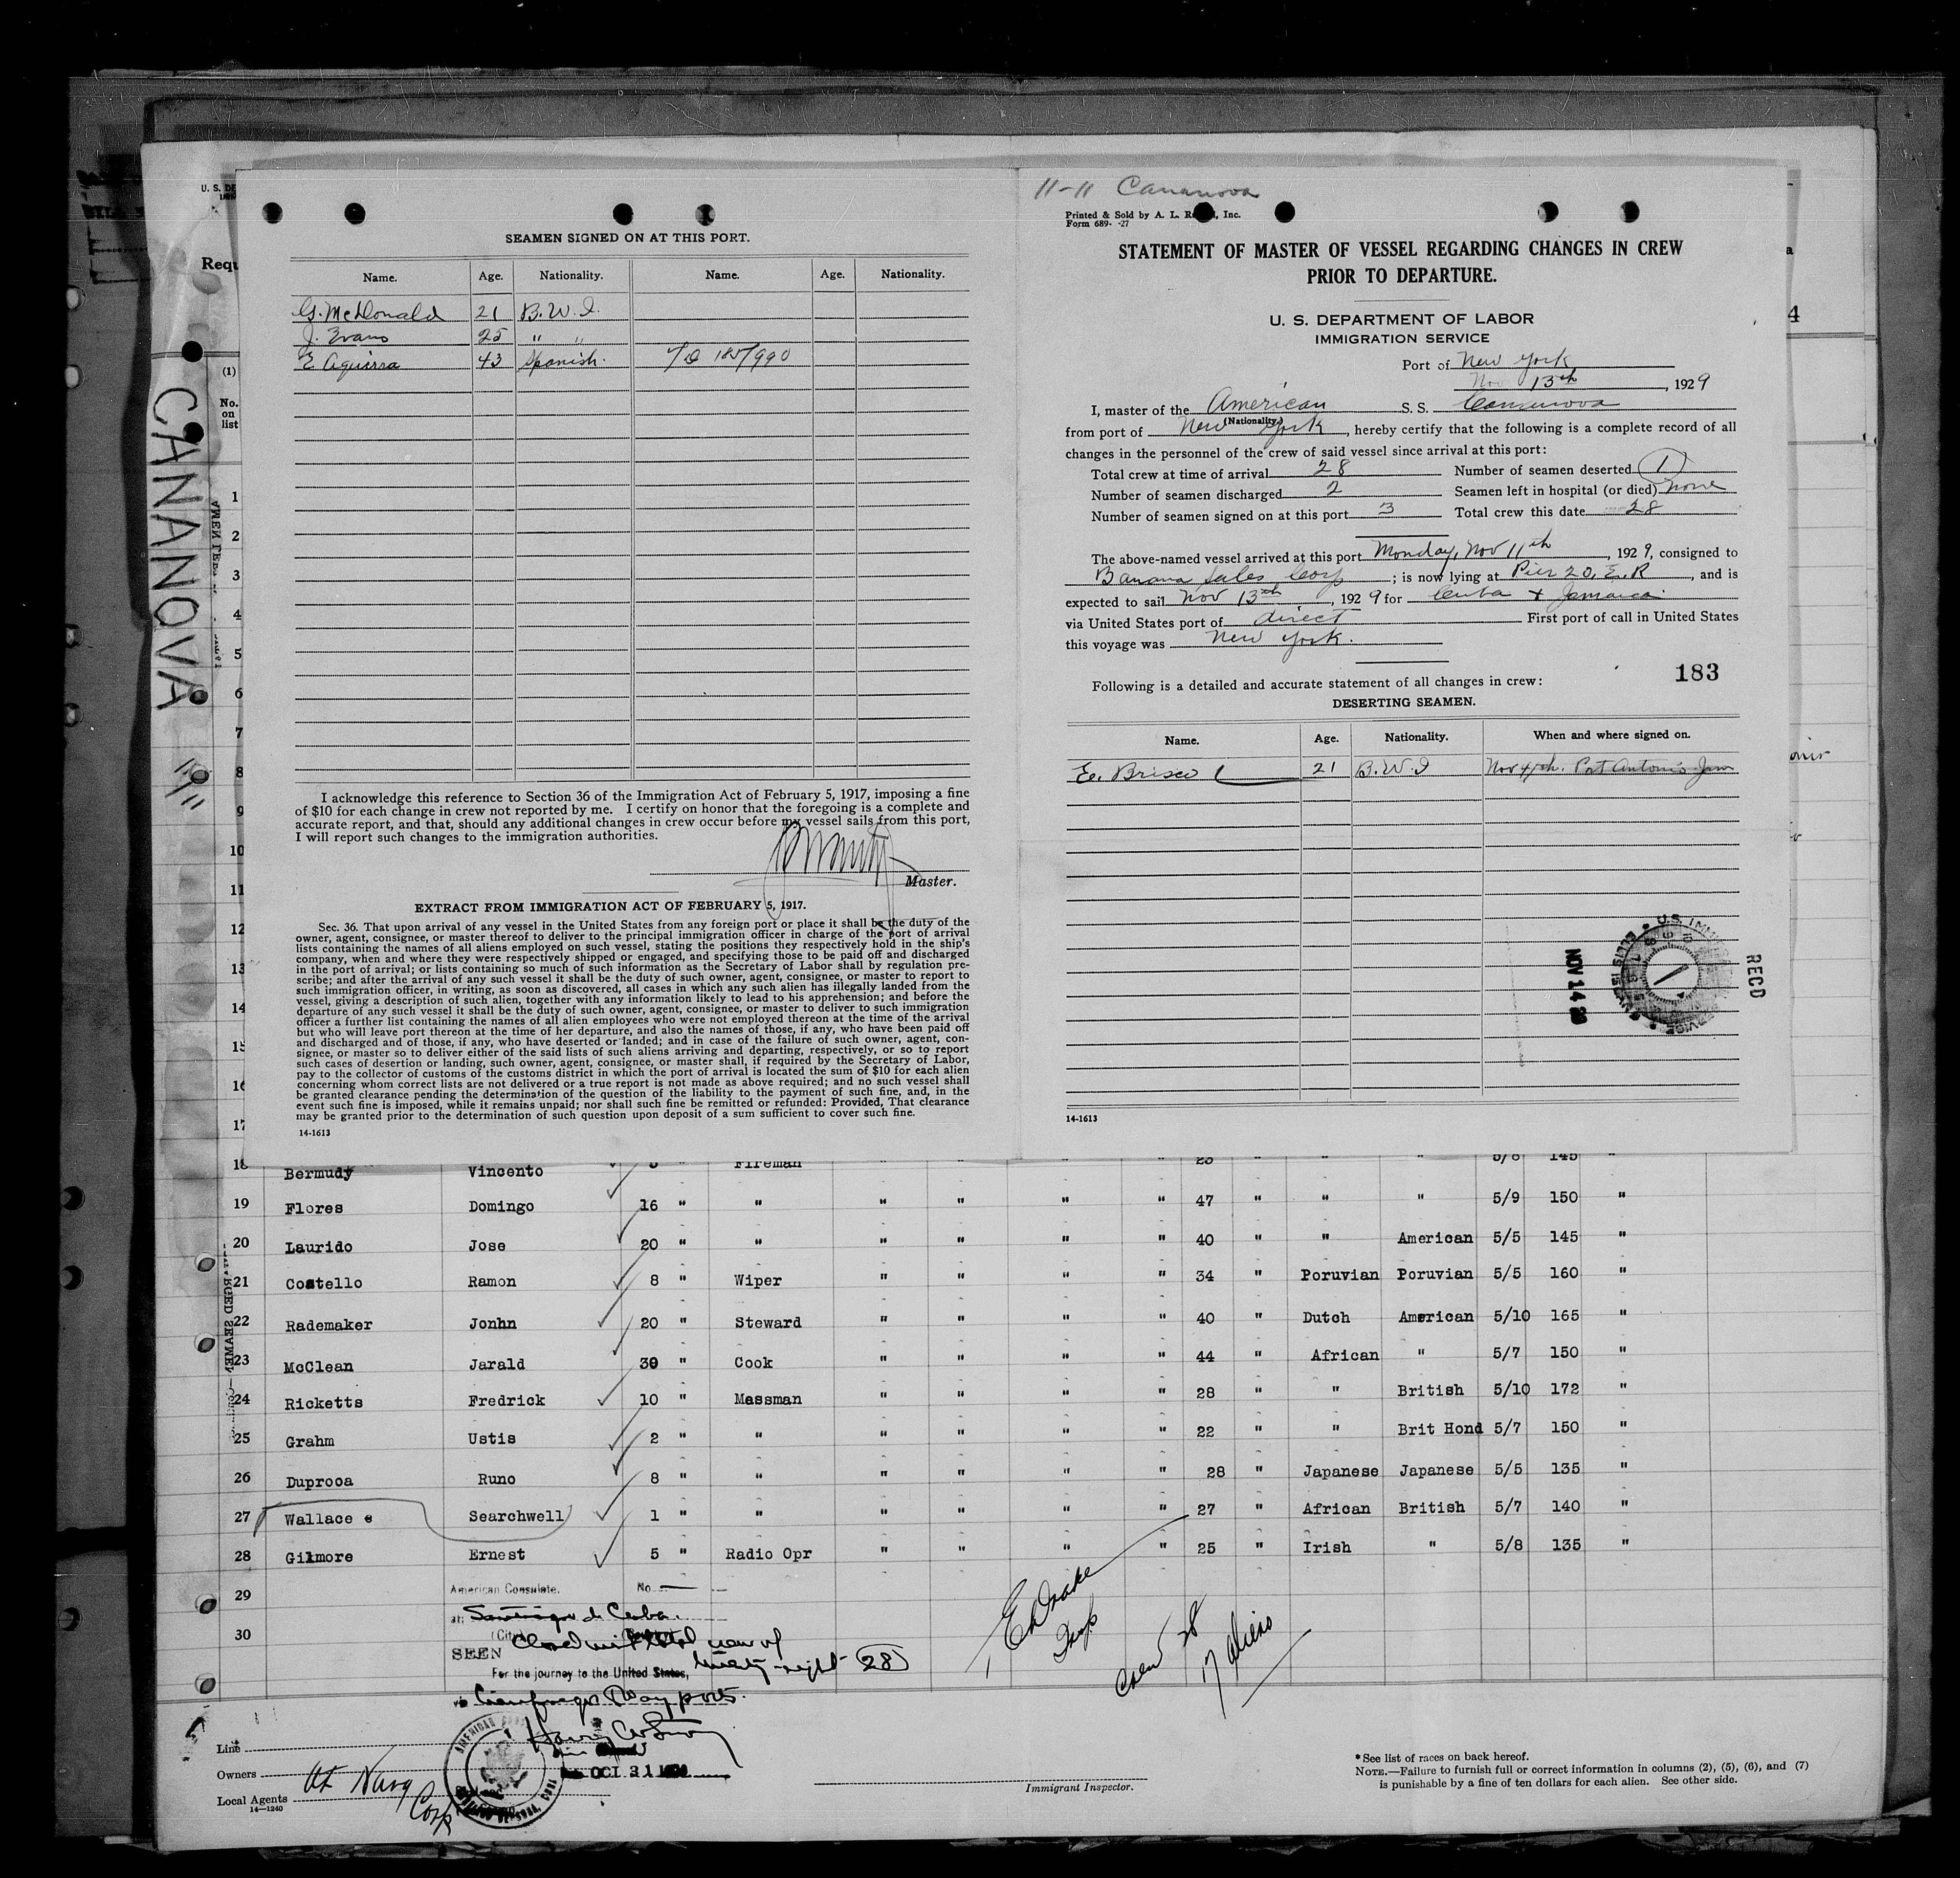 11-11 Cananova
SEAMEN SIGNED ON AT THIS PORT.
Name. Age. Nationality. Name. Age. Nationality.
G. McDonald 21 B.W.I.
J. Evans 25 " "
E Aguirra 43 Spanish.
I acknowledge this reference to Section 36 of the Immigration Act of February 5, 1917, imposing a fine
of $10 for each change in crew not reported by me. I certify on honor that the foregoing is a complete and
accurate report, and that, should any additional changes in crew occur before my vessel sails from this port,
I will report such changes to the immigration authorities.
Master.
EXTRACT FROM IMMIGRATION ACT OF FEBRUARY 5, 1917.
Sec. 36. That upon arrival of any vessel in the United States from any foreign port or place it shall be the duty of the
owner, agent, consignee, or master thereof to deliver to the principal immigration officer in charge of the port of arrival
lists containing the names of all aliens employed on such vessel, stating the positions they respectively hold in the ship's
company, when and where they were respectively shipped or engaged, and specifying those to be paid off and discharged
in the port of arrival; or lists containing so much of such information as the Secretary of Labor shall by regulation pre-
scribe; and after the arrival of any such vessel it shall be the duty of such owner, agent, consignee, or master to report to
such immigration officer, in writing, as soon as discovered, all cases in which any such alien has illegally landed from the
vessel, giving a description of such alien, together with any information likely to lead to his apprehension; and before the
departure of any such vessel it shall be the duty of such owner, agent, consignee, or master to deliver to such immigration
officer a further list containing the names of all alien employees who were not employed thereon at the time of the arrival
but who will leave port thereon at the time of her departure, and also the names of those, if any, who have been paid off
and discharged and of those, if any, who have deserted or landed; and in case of the failure of such owner, agent, con-
signee, or master so to deliver either of the said lists of such aliens arriving and departing, respectively, or so to report
such cases of desertion or landing, such owner, agent, consignee, or master shall, if required by the Secretary of Labor,
pay to the collector of customs of the customs district in which the port of arrival is located the sum of $10 for each alien
concerning whom correct lists are not delivered or a true report is not made as above required; and no such vessel shall
be granted clearance pending the determination of the question of the liability to the payment of such fine, and, in the
event such fine is imposed, while it remains unpaid; nor shall such fine be remitted or refunded: Provided, That clearance
may be granted prior to the determination of such question upon deposit of a sum sufficient to cover such fine.
14-1613
Printed & Sold by A. L. Inc.
Form 689- -27
STATEMENT OF MASTER OF VESSEL REGARDING CHANGES IN CREW
PRIOR TO DEPARTURE.
U. S. DEPARTMENT OF LABOR
IMMIGRATION SERVICE
Port of New York
Nov 13th, 1929
I, master of the American S. S. Cananova
(Nationality)
from port of New York, hereby certify that the following is a complete record of all
changes in the personnel of the crew of said vessel since arrival at this port:
Total crew at time of arrival 28 Number of seamen deserted 1
Number of seamen discharged 2 Seamen left in hospital (or died) none
Number of seamen signed on at this port 3 Total crew this date 28
The above-named vessel arrived at this port Monday, Nov 11th, 1929, consigned to
Banana Sales Corp; is now lying at Pier 20, E.R, and is
expected to sail Nov 13th, 1929 for Cuba + Jamaica
via United States port of direct First port of call in United States
this voyage was New York.
183
Following is a detailed and accurate statement of all changes in crew:
DESERTING SEAMEN.
Name. Age. Nationality. When and where signed on.
E. Brisco 21 B.W.I Nov 4th. Port Antonio Jam
RECD
NOV 14 29
14-1613
CANANOVA
11/11
U. S. DE
Requ
(1)
No.
on
list
1
2
3
4
5
6
7
8
9
10
11
12
13
14
15
16
17
18 Bermudy Vincento Fireman " " " " 5/8 145 "
19 Flores Domingo 16 " " " " " " 47 " " " 5/9 150 "
20 Laurido Jose 20 " " " " " " 40 " " American 5/5 145 "
21 Costello Ramon 8 " Wiper " " " " 34 " Poruvian Poruvian 5/5 160 "
22 Rademaker Jonhn 20 " Steward " " " " 40 " Dutch American 5/10 165 "
23 McClean Jarald 30 " Cook " " " " 44 " African " 5/7 150 "
24 Ricketts Fredrick 10 " Massman " " " " 28 " " British 5/10 172 "
25 Grahm Ustis 2 " " " " " " 22 " " Brit Hond 5/7 150 "
26 Duprooa Runo 8 " " " " " " 28 " Japanese Japanese 5/5 135 "
27 Wallace e Searchwell 1 " " " " " " 27 " African British 5/7 140 "
28 Gilmore Ernest 5 " Radio Opr " " " " 25 " Irish " 5/8 135 "
29
30
American Consulate. No.
at Santiago de Cuba.
(City)
SEEN
For the journey to the United States,
twenty-eight 28
OCT 31
E Drake
Insp
Crew 28
17 aliens
Line
Owners
Local Agents
14—1240
At Navg Corp
Immigrant Inspector.
* See list of races on back hereof.
NOTE.—Failure to furnish full or correct information in columns (2), (5), (6), and (7)
is punishable by a fine of ten dollars for each alien. See other side.